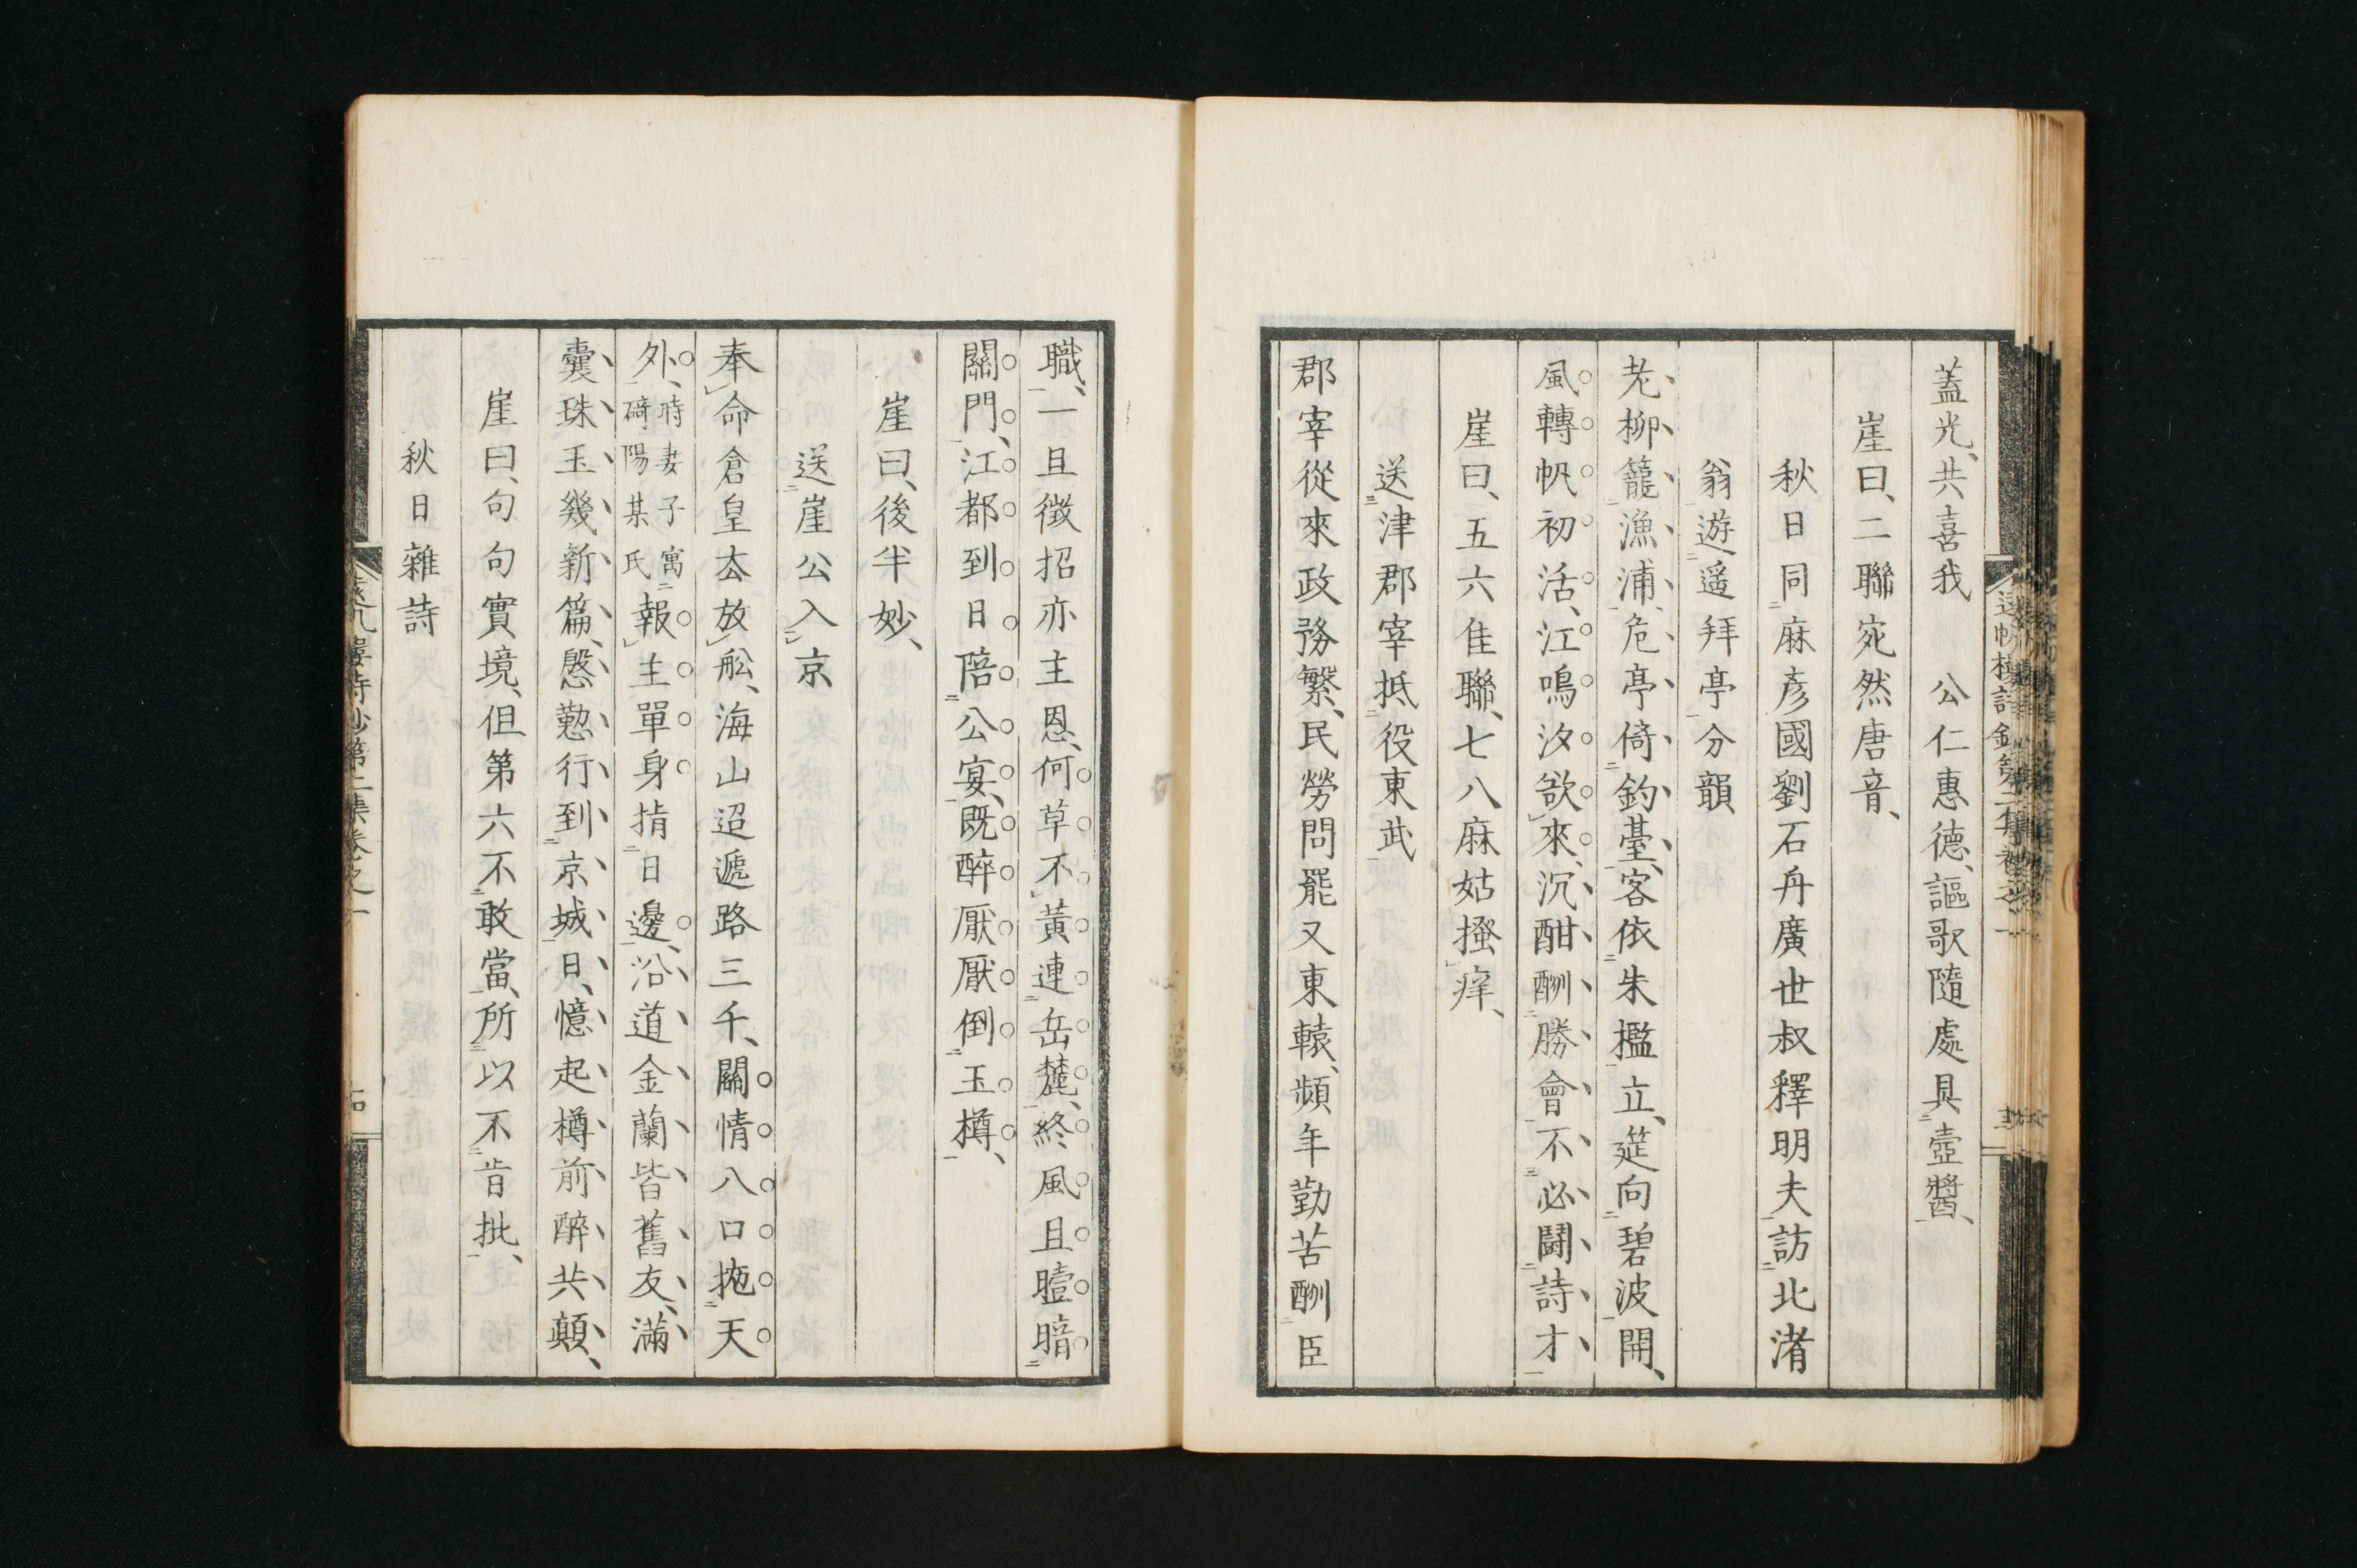 蓋光、共喜我　公仁惠德、謳歌隨處具壺醬、
崖曰、二聯宛然唐音、
秋日同麻彥國劉石舟廣世叔釋明夫訪北渚
翁遊遥拜亭分韻
老柳籠漁浦、危亭倚釣臺、客依朱檻立、筵向碧波開、
風轉帆初活、江鳴汐欲來、沉酣酬勝會、不必鬪詩才、
崖曰、五六佳聯、七八麻姑搔痒、
送津郡宰抵役東武
郡宰從來政務繁、民勞問罷又東轅、頻年勤苦酬臣
職、一旦徴招亦主恩、何草不黃連岳麓、終風且曀暗
關門、江都到日陪公宴、既醉厭厭倒玉樽、
崖曰、後半妙、
送崖公入京
奉命倉皇厺放舩、海山迢遞路三千、關情八口拖天
外、時妻子寓碕陽某氏報主單身揹日邊、沿道金蘭皆舊友、滿
囊珠玉幾新篇、慇懃行到京城日、憶起樽前醉共顛、
崖曰、句句實境、但第六不敢當、所以不肯批、
秋日雜詩